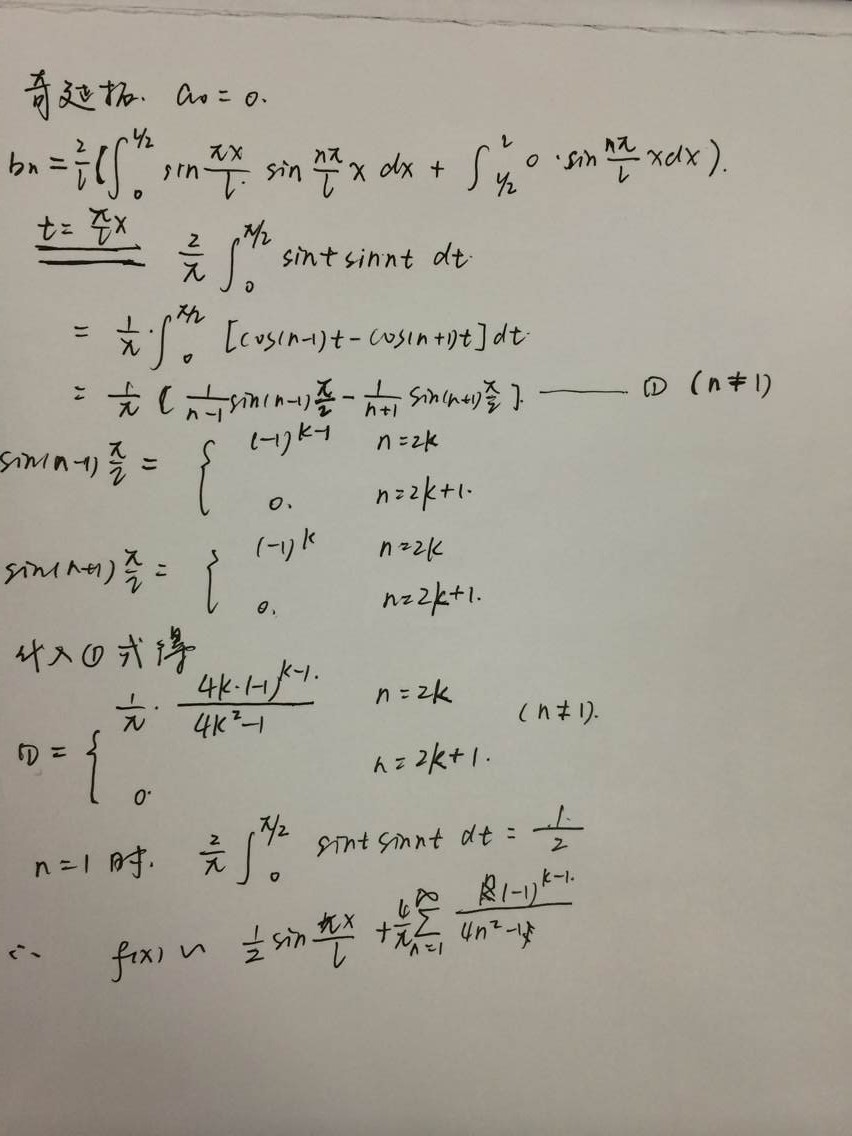 奇延拓. a₀ = 0.
bn = 2/l (∫₀^{l/2} sin πx/l · sin nπ/l x dx + ∫_{l/2}^{l} 0 · sin nπ/l x dx).
t = π/l x 2/π ∫₀^{π/2} sint sinnt dt.
= 1/π · ∫₀^{π/2} [cos(n-1)t - cos(n+1)t] dt.
= 1/π [1/(n-1) sin(n-1)π/2 - 1/(n+1) sin(n+1)π/2]. —— ① (n ≠ 1)
sin(n-1)π/2 = { (-1)^{k-1} n = 2k
0. n = 2k+1.
sin(n+1)π/2 = { (-1)^k n = 2k
0. n = 2k+1.
代入①式得
① = { 1/π · 4k·(-1)^{k-1}/(4k²-1) n = 2k (n ≠ 1).
0. n = 2k+1.
n = 1 时. 2/π ∫₀^{π/2} sint sinnt dt = 1/2
∴ f(x) ~ 1/2 sin πx/l + 4/π ∑_{n=1}^{∞} (-1)^{k-1}/(4n²-1)